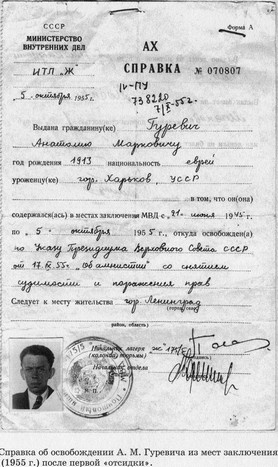 СССР
МИНИСТЕРСТВО
ВНУТРЕННИХ ДЕЛ
Форма А
ИТЛ „Ж"
АХ
СПРАВКА № 070807
IV-ПУ
798220
7/X-55г.
„5 октября 1955 г.
Выдана гражданину(ке) Гуревич
Анатолию Марковичу
год рождения 1913 национальность еврей
уроженцу(ке) гор. Харьков, УССР
в том, что он(она)
содержался(ась) в местах заключения МВД с „21" июня 1945 г.
по „5" октября 1955 г., откуда освобожден(а)
по Указу Президиума Верховного Совета СССР
от 17.IX.55г. „Об амнистии" со снятием
судимости и поражения прав
Следует к месту жительства гор. Ленинград
район, область)
Начальник лагеря
(колонии, тюрьмы)
Начальник отдела
Справка об освобождении А. М. Гуревича из мест заключения
(1955 г.) после первой «отсидки».